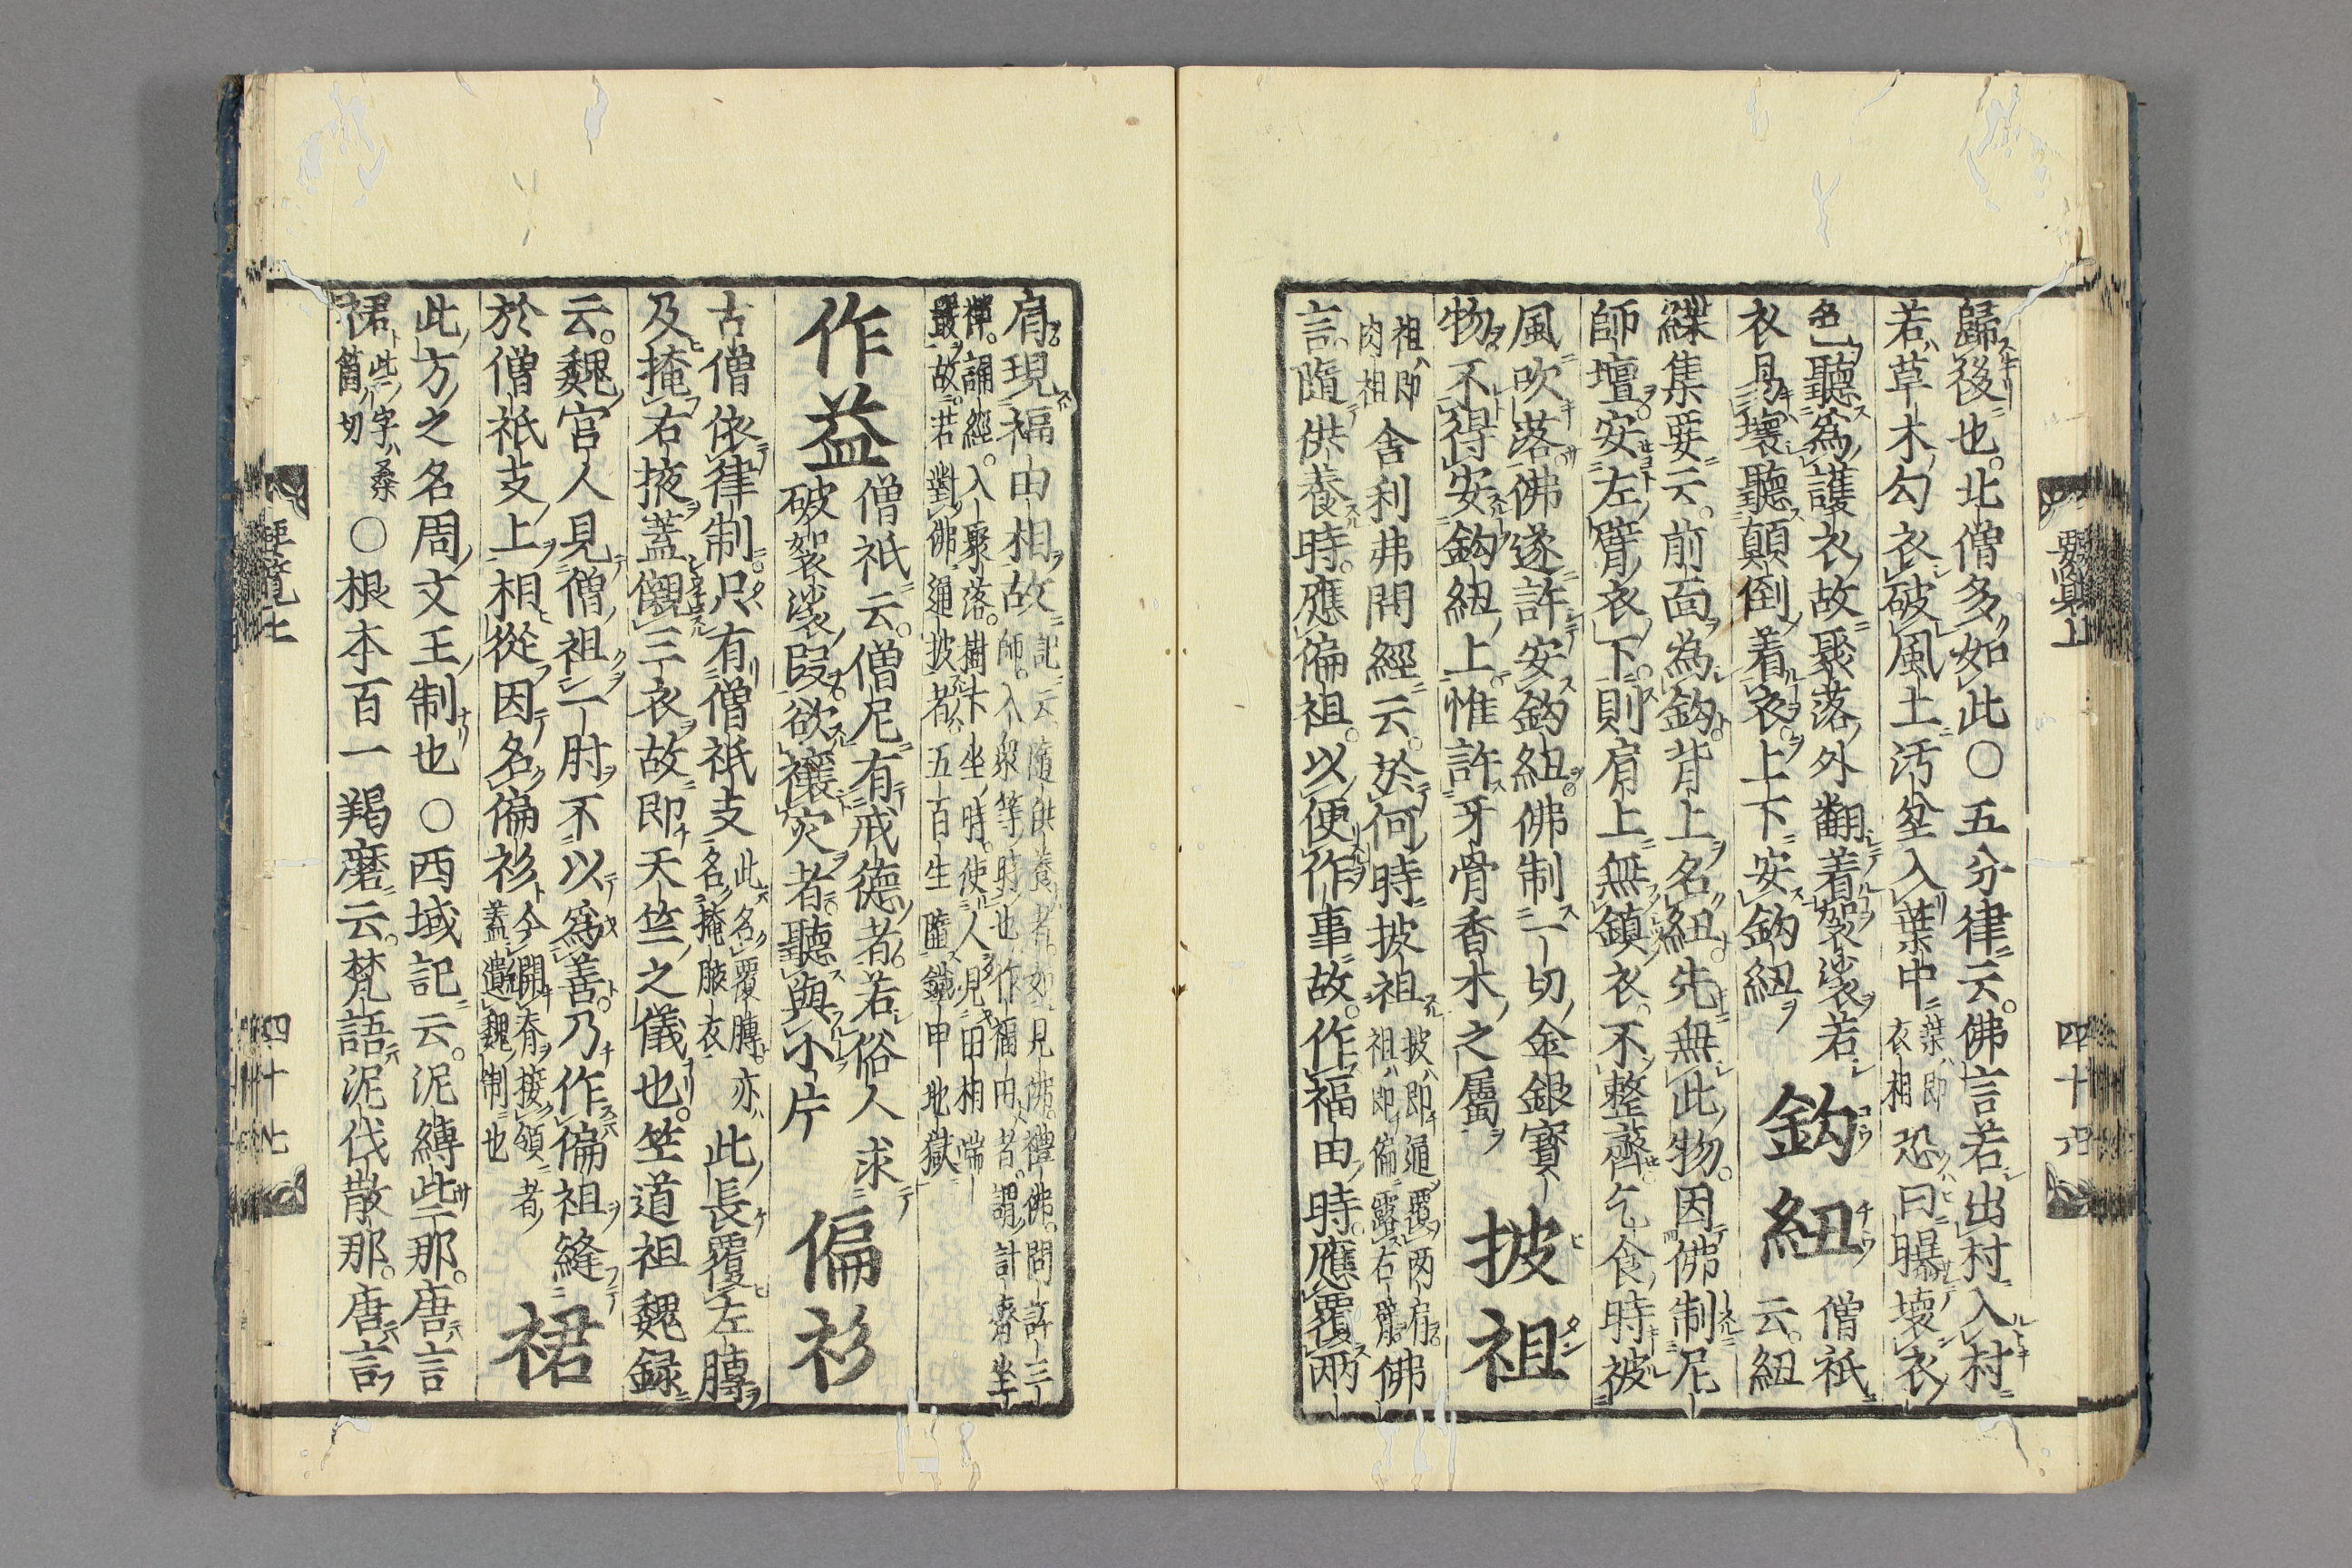 歸後也。北僧多如此〇五分律云。佛言若出村入村
若草木勾衣破風土汚坌入葉中葉即衣相恐曰曝壞衣
色聽為護衣故聚落外翻着袈裟若鈎紐僧祇
衣易壞聽顛倒着衣上下安鈎紐云。紐
緤集要云。前面為鈎背上名紐先無此物。因佛制尼
師壇安左臂衣下。則肩上無鎮衣不整齊乞食時被
風吹落佛遂許安鈎紐。佛制一切金銀寶披袒
物不得安鈎紐上惟許牙骨香木之屬
袒即肉袒舍利弗問經云。於何時披袒披即通覆兩肩袒即偏露右臂佛
言隨供養時。應偏袒。以便作事故。作福田時。應覆兩
肩現福田相故記云隨供養者。如見佛。禮佛。問訊三師。入眾等時也作福田者。謂計齊坐
禅。誦經。入聚落。樹下坐時。使人見田相端嚴故。若對佛通披者五百生墮鐵甲地獄
作益僧祇云。僧尼有戒德者。若俗人求
破袈裟段欲禳灾者聽與小片偏衫
古僧依律制只有僧祇支此名覆膊亦名掩腋衣此長覆左膊
及掩右掖蓋儭三衣故即天竺之儀也。竺道祖魏録
云。魏官人見僧袒一肘不以為善。乃作偏袒縫裙
於僧祇支上相從因名偏衫今開脊接領者蓋遺魏制也
此方之名周文王制也〇西域記云。泥縛些那。唐言
裙此字桑箇切〇根本百一羯磨云。梵語泥伐散那。唐言
要覧上
四十六
四十七